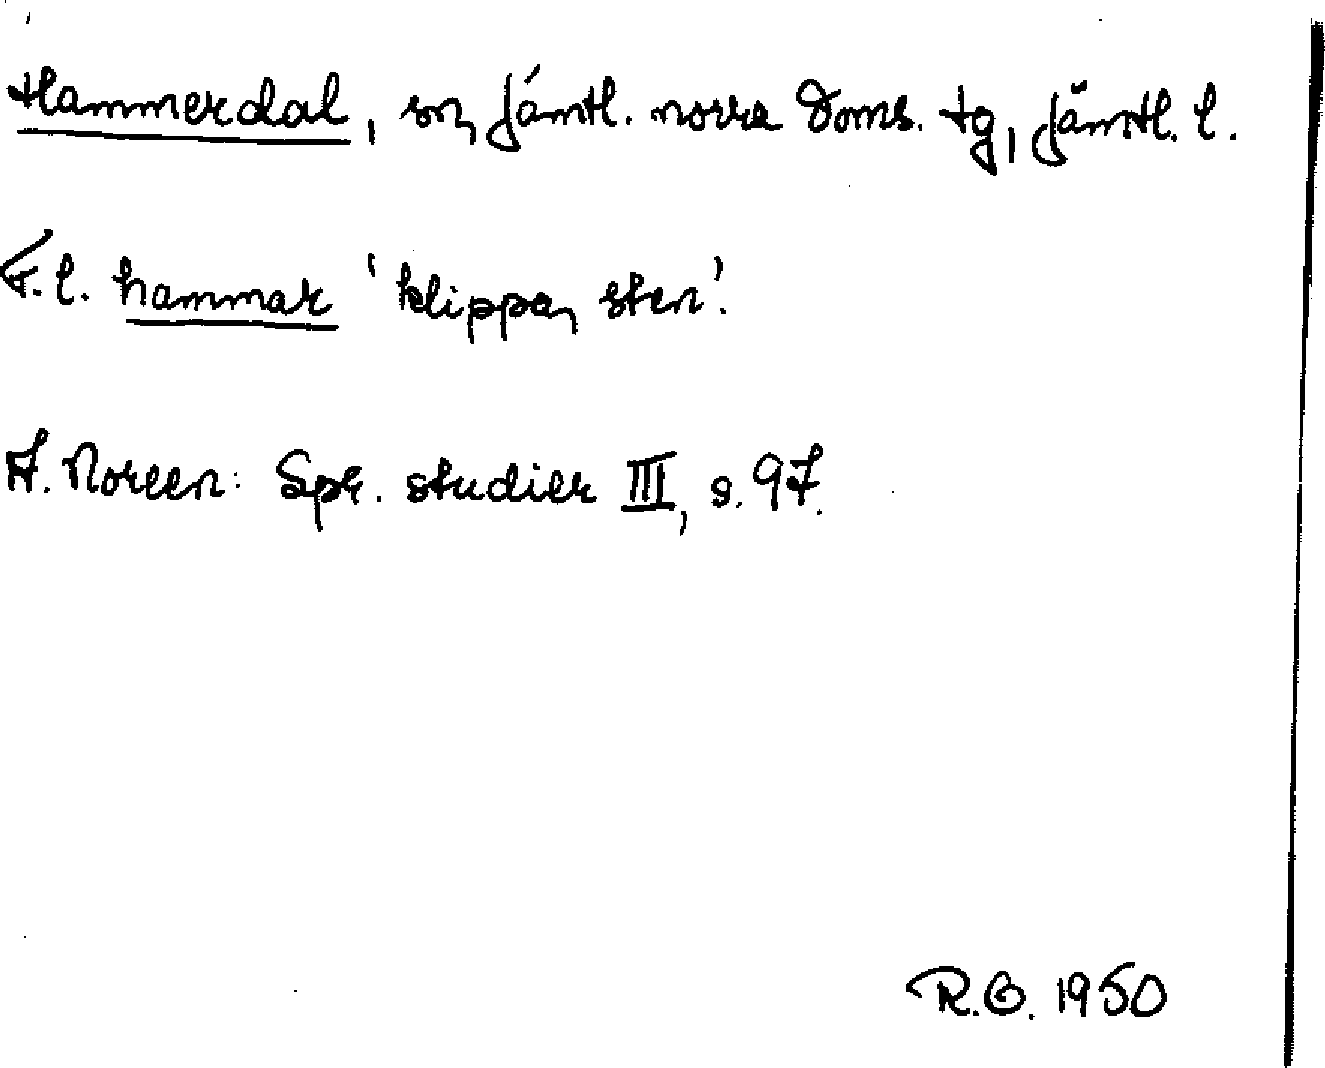 Hammerdal, sn, Jämtl. norra Doms. tg, Jämtl. l.
F. l. hammar 'klippa, sten'.
A. Noreen: Spr. studier III, s. 97.
R.O. 1950